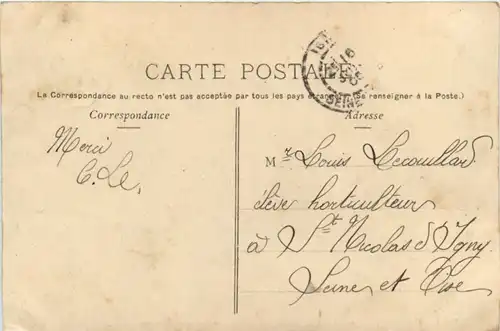 CARTE POSTALE
La Correspondance au recto n'est pas acceptée par tous les pays étrangers (Se renseigner à la Poste.)
Correspondance
Adresse
Merci
C. Le,
Mr Louis Lecouillard
élève horticulteur
à St Nicolas d'Igny
Seine et Oise
16
SEINE